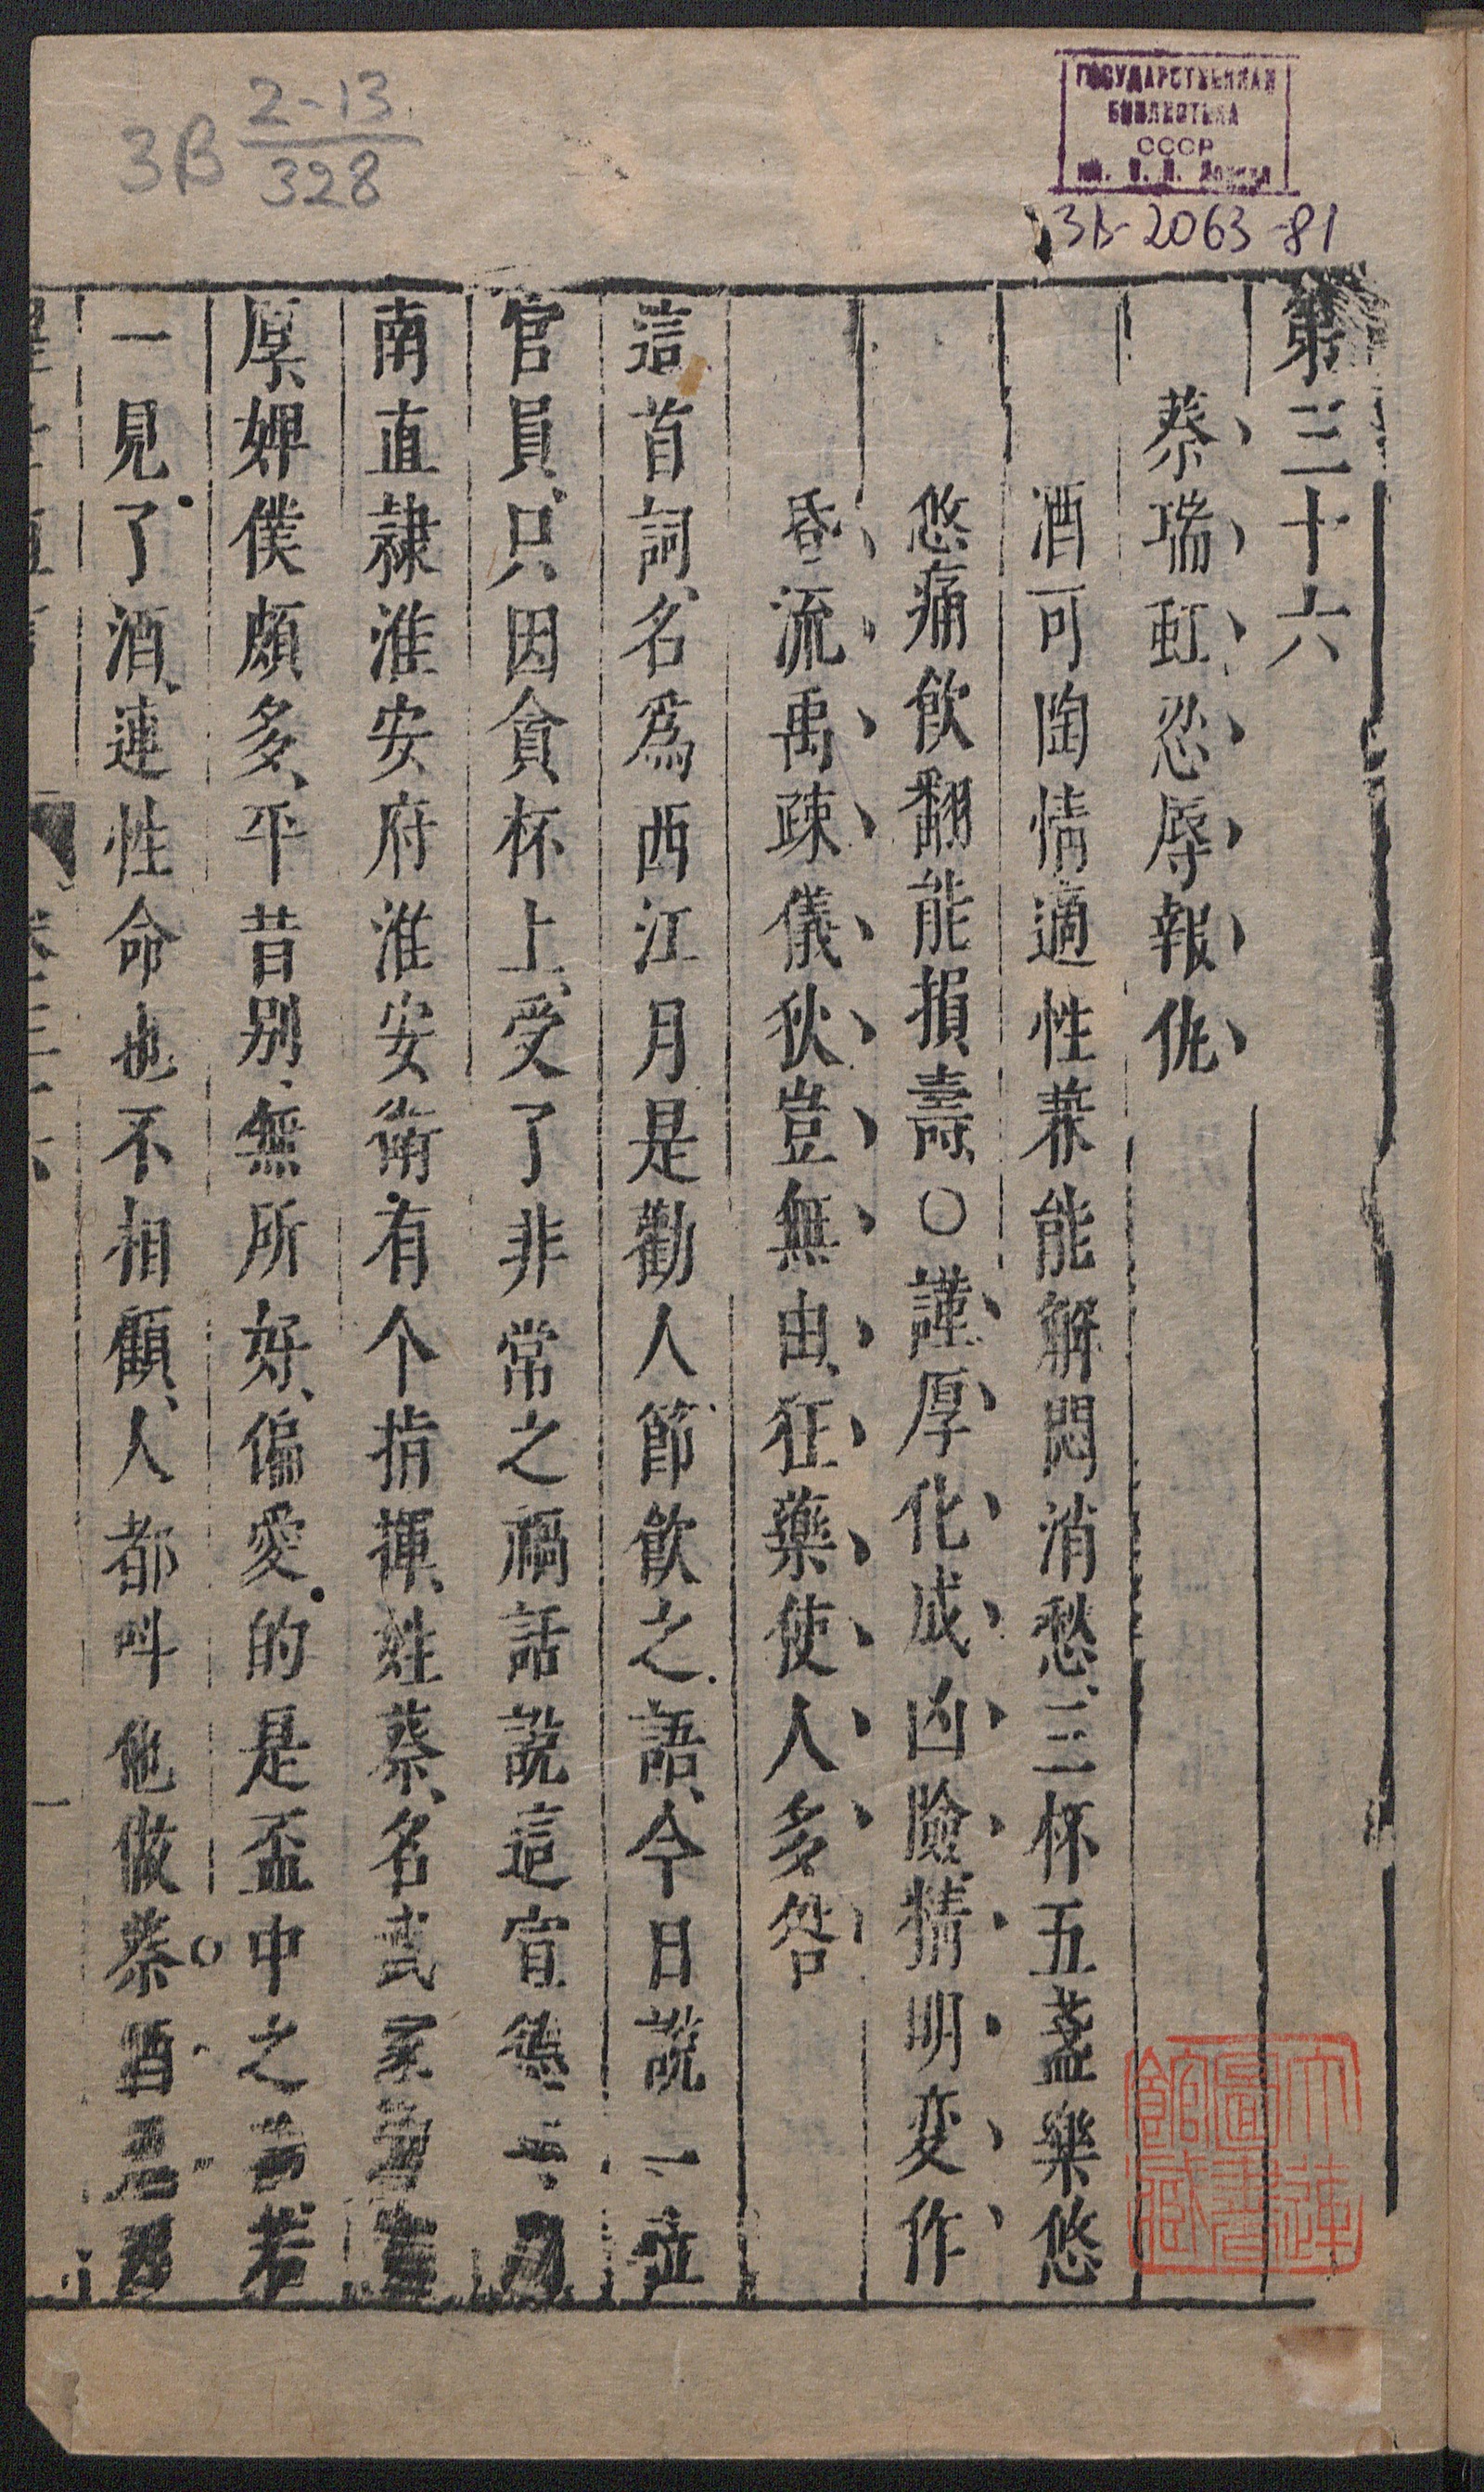 2-13
3В 328
ГОСУДАРСТВЕННАЯ
БИБЛИОТЕКА
СССР
им. В. И. Ленина
3В-2063-81
第三十六
蔡瑞虹忍辱報仇
酒可陶情適性兼能解悶消愁三杯五盞樂悠
悠痛飲翻能損壽○謹厚化成凶險精明変作
昏流禹疎儀狄豈無由狂藥使人多咎
這首詞名爲西江月是勸人節飲之語今日說一位
官員只因貪杯上受了非常之禍話說這宣德
南直隸淮安府淮安衛有个指揮姓蔡名武家
厚婢僕頗多平昔别無所好偏愛的是盃中之 若
一見了酒連性命也不相顧人都呌他做蔡酒
卷三十六
一
大連
圖書
館藏